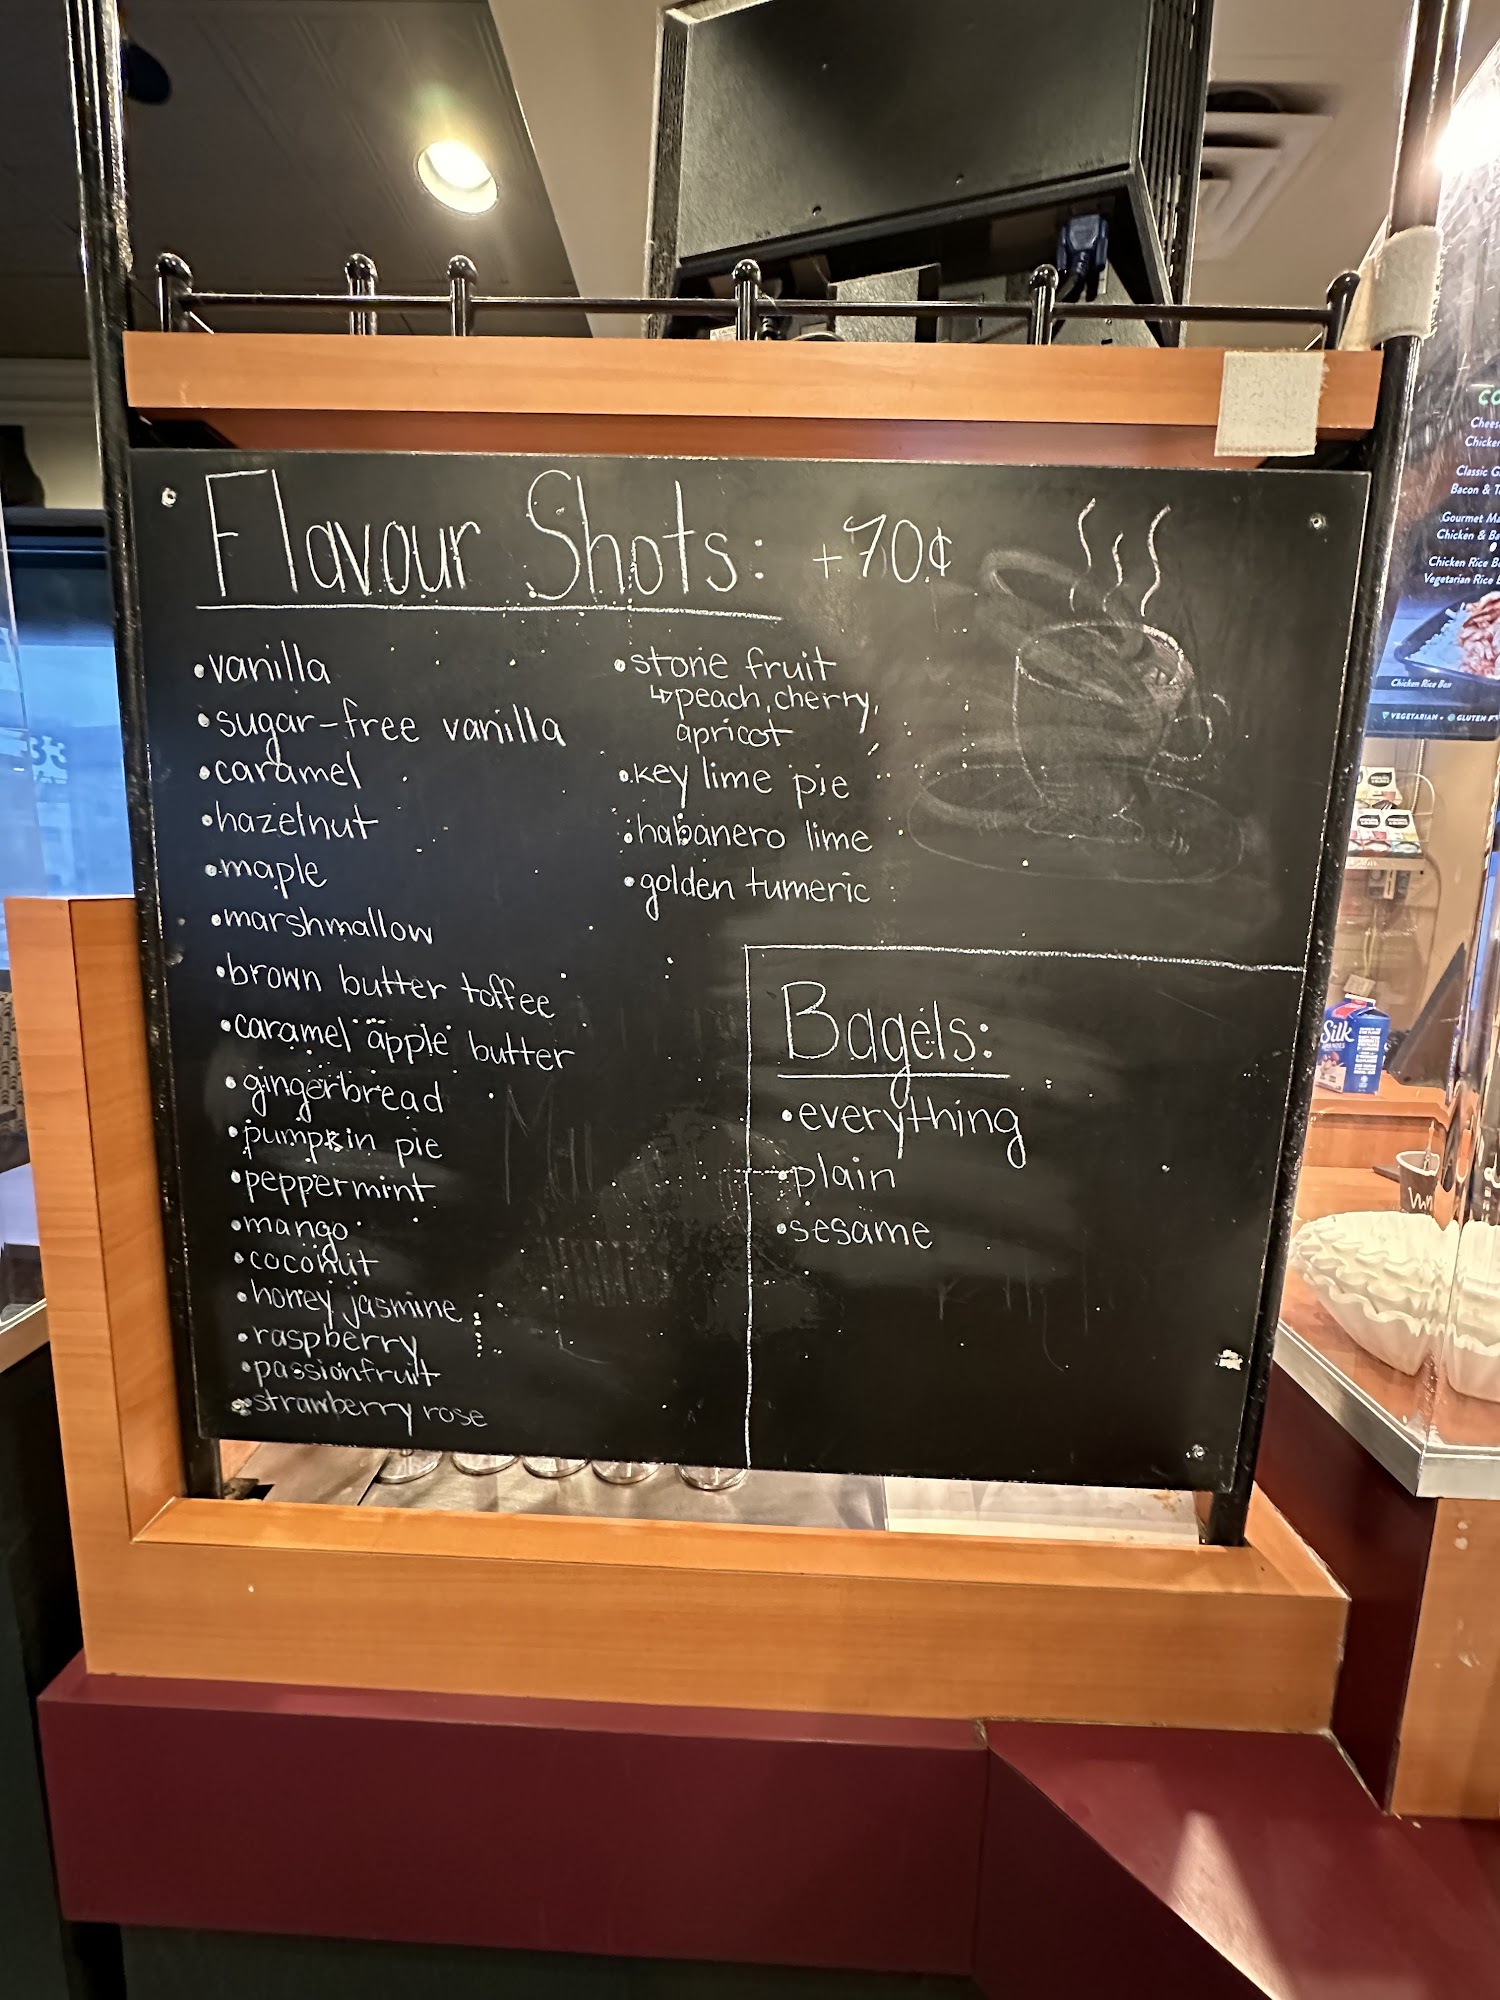 Flavour Shots: +70¢
•vanilla
•sugar-free vanilla
•caramel
•hazelnut
•maple
•marshmallow
•brown butter toffee
•caramel apple butter
•gingerbread
•pumpkin pie
•peppermint
•mango
•coconut
•honey jasmine
•raspberry
•passionfruit
•strawberry rose
•stone fruit
↳peach, cherry,
apricot
•key lime pie
•habanero lime
•golden tumeric
Bagels:
•everything
•plain
•sesame
Classic
Bacon &
Gourmet
Chicken &
Chicken Rice
Vegetarian Rice
Chicken Rice Box
VEGETARIAN • GLUTEN
Silk